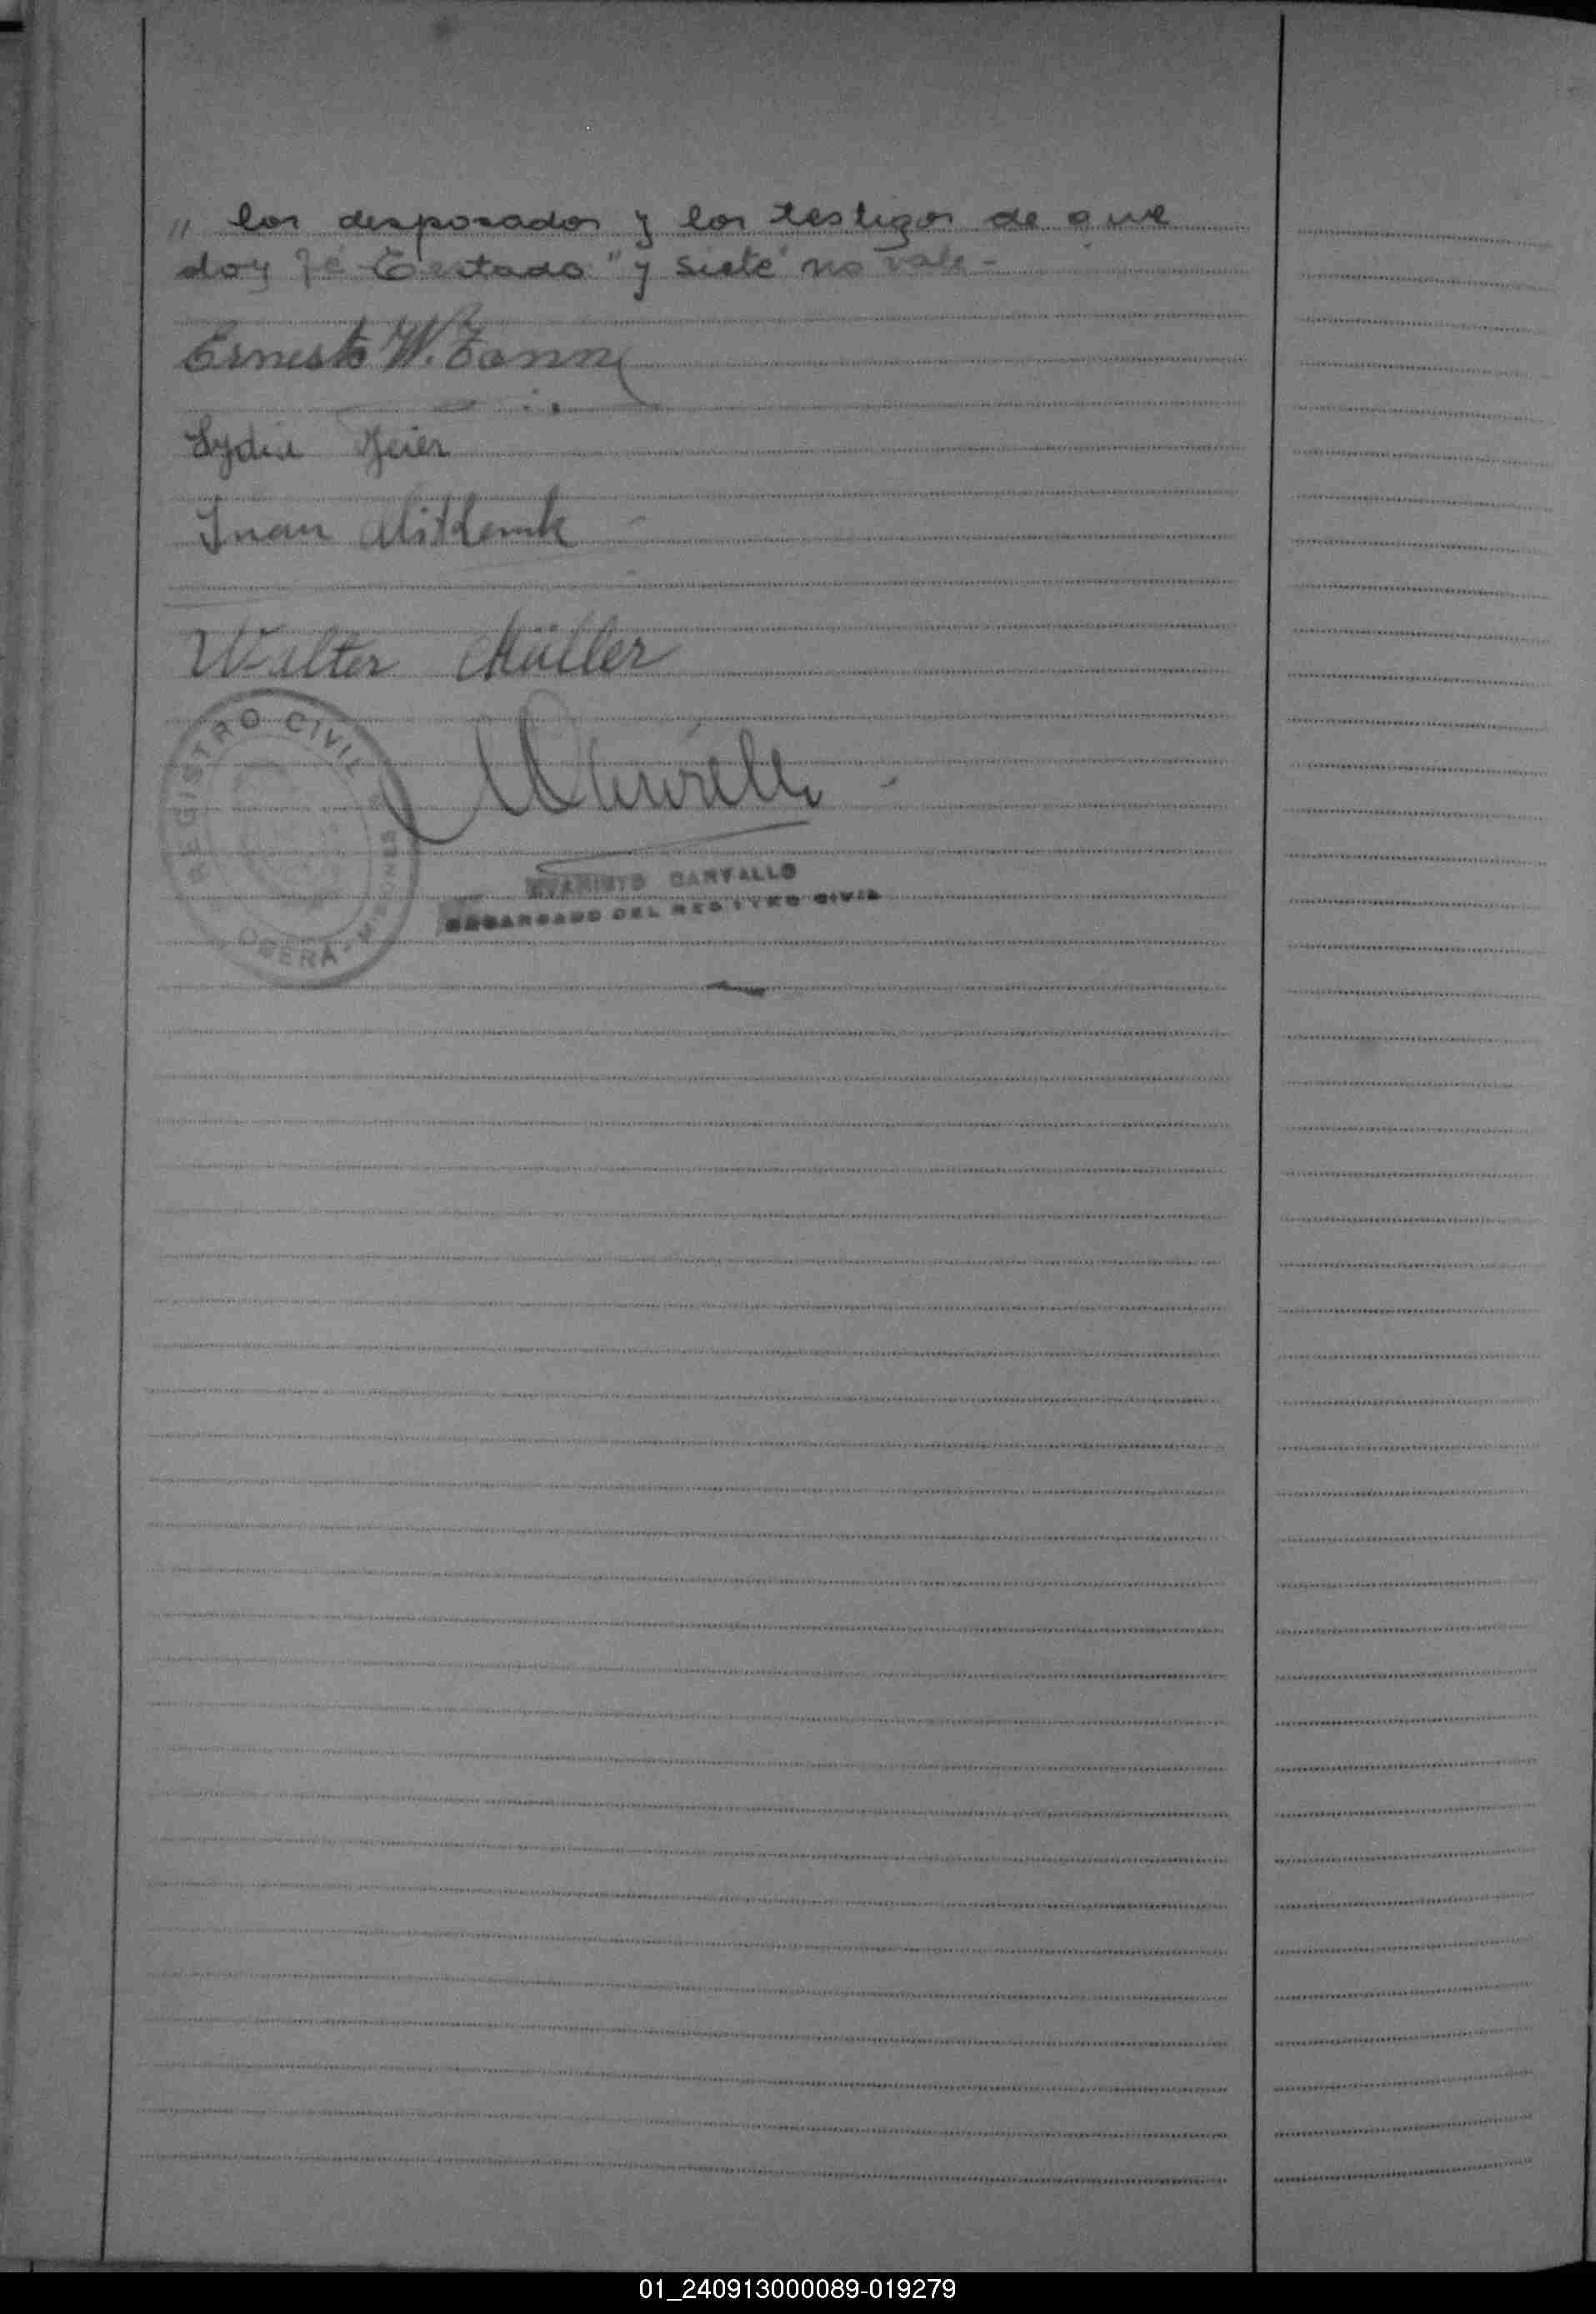 " los desposados y los testigos de que
doy fé Testado "y siete" no vale -
Ernesto W. Zann
Lydia Meier
Juan
Walter Müller
REGISTRO CIVIL
OBERÁ
EVARISTO CARVALLO
ENCARGADO DEL REGISTRO CIVIL
01_240913000089-019279